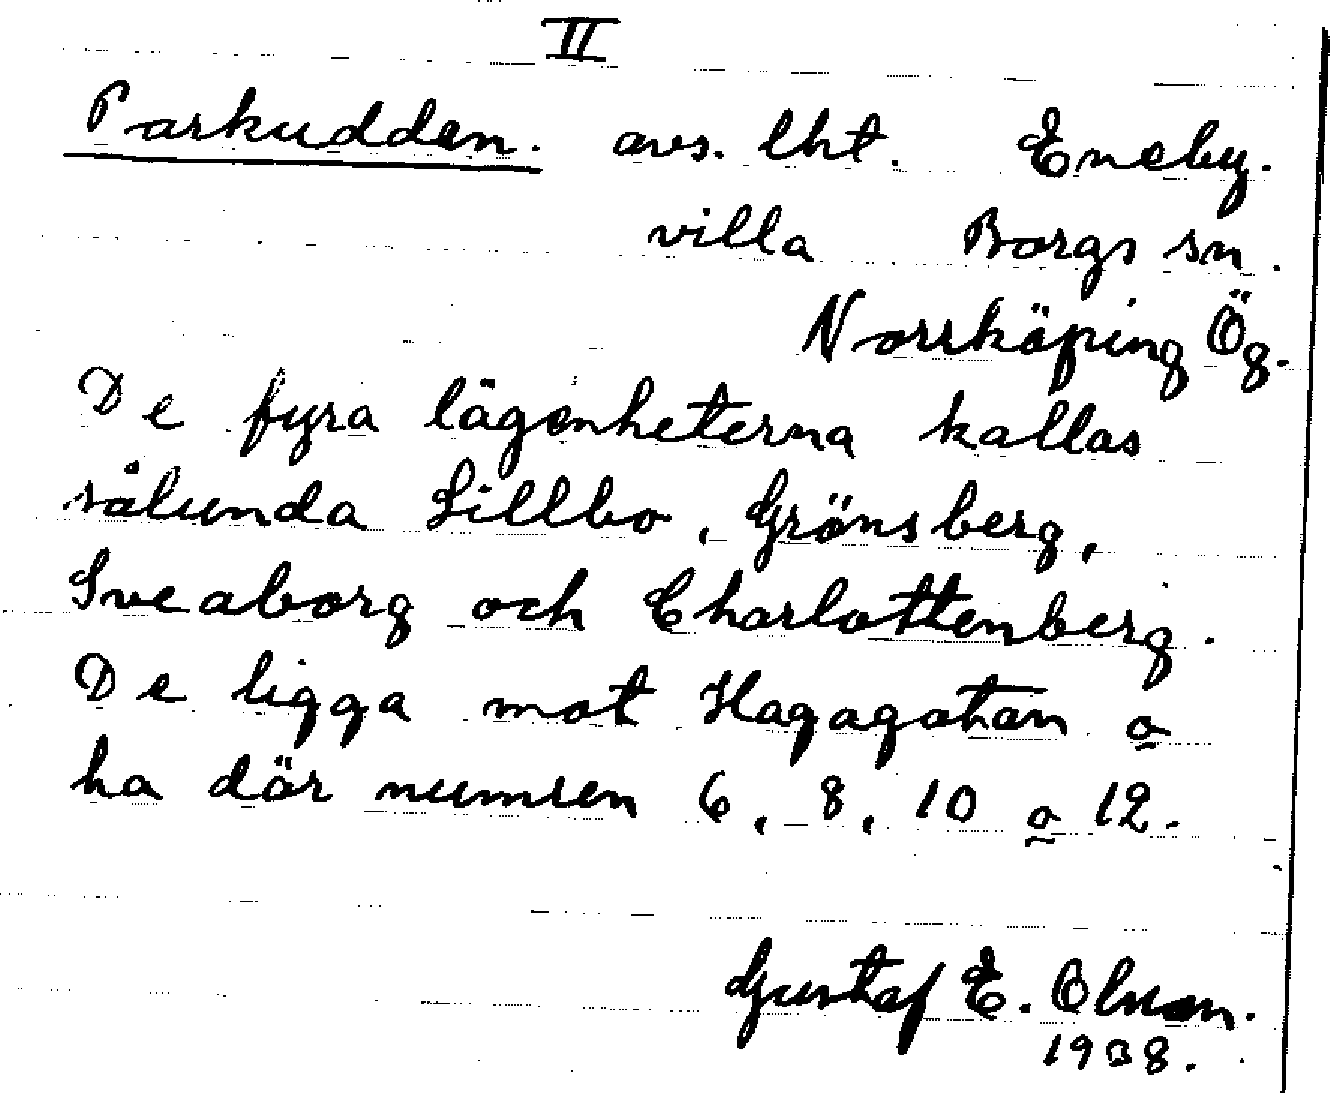 II
Parkudden. avs. lht. Eneby.
villa Borgs sn.
Norrköping Ög.
De fyra lägenheterna kallas
sålunda Lillbo, Grönsberg,
Sveaborg och Charlottenberg.
De ligga mot Hagagatan o
ha där numren 6, 8, 10 o 12.
Gustaf E. Olson.
1938.